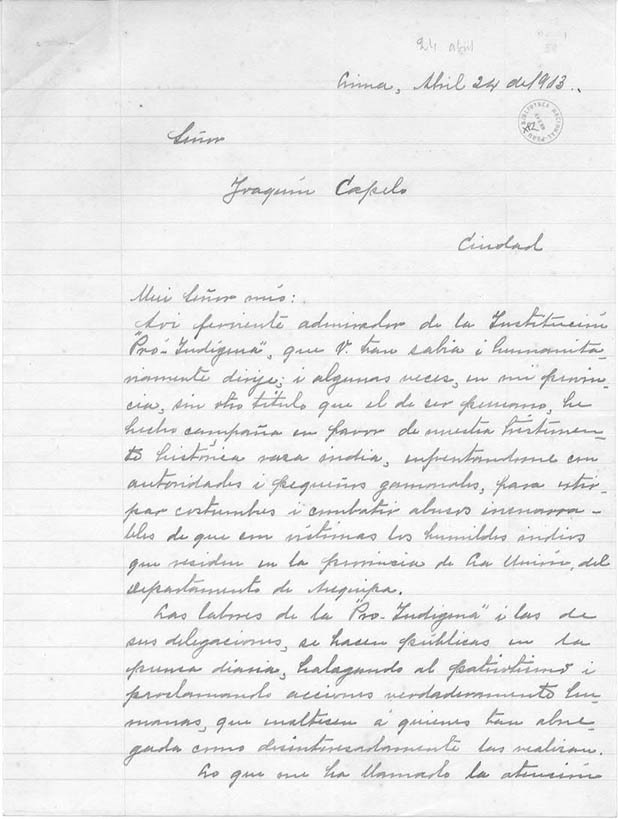 24 abril
Lima, Abril 24 de 1913.
BIBLIOTECA NACIONAL
PERU
Señor
Joaquín Capelo
Ciudad
Mui Señor mío:
Soi ferviente admirador de la Institución
"Pró-Indígena", que V. tan sabia i humanita-
riamente dirije; i algunas veces, en mi provin-
cia, sin otro título que el de ser peruano, he
hecho campaña en favor de nuestra tristemen-
te histórica raza india, enfrentandome con
autoridades i pequeños gamonales, para extir-
par costumbres i combatir abusos inenarra-
bles de que son víctimas los humildes indios
que residen en la provincia de La Unión, del
Departamento de Arequipa.
Las labores de la "Pro-Indígena" i las de
sus delegaciones, se hacen públicas en la
prensa diaria, halagando al patriotismo i
proclamando acciones verdaderamente hu-
manas, que enaltecen á quienes tan abne-
gada como desinteresadamente las realizan.
Lo que me ha llamado la atención